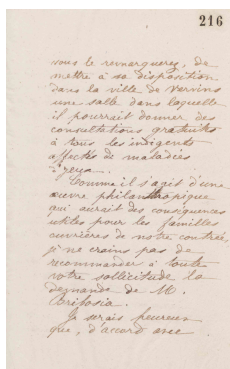 216
vous le remarquerez, de
mettre à sa disposition
dans la ville de Vervins
une salle dans laquelle
il pourrait donner des
consultations gratuites
à tous les indigents
affectés de maladies
d'yeux.
Comme il s'agit d'une
œuvre philanthropique
qui aurait des conséquences
utiles pour les familles
ouvrières de notre contrée,
je ne crains pas de
recommander à toute
votre sollicitude la
demande de M.
Brifosia.
Je serais heureux
que, d'accord avec